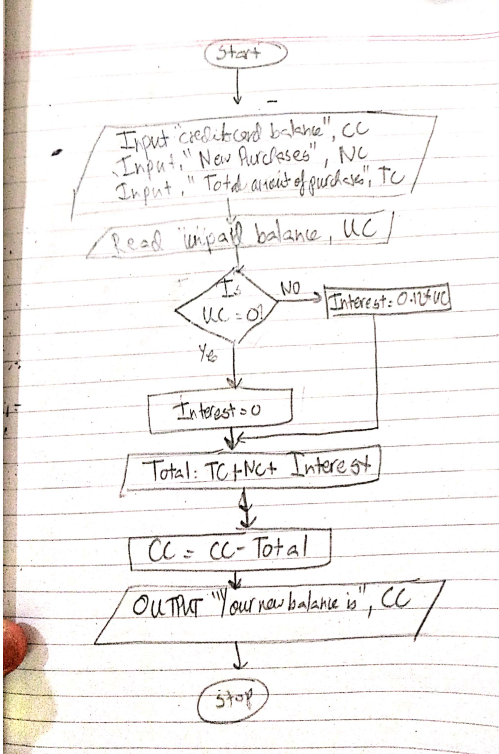 Start
Input "credit card balance", CC
Input, "New Purchases", NC
Input, "Total amount of purchases", TC
Read "unpaid balance, UC
Is
UC = 0?
NO
Interest = 0.12*UC
Yes
Interest = 0
Total = TC + NC + Interest
CC = CC - Total
OUTPUT "Your new balance is", CC
Stop